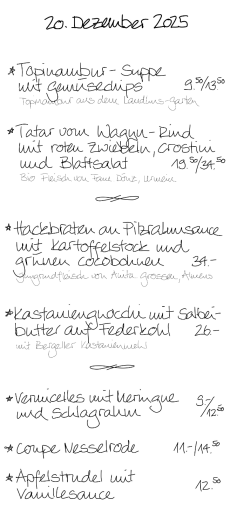 20. Dezember 2025
* Topinambur-Suppe
mit gemüsechips 9.50/13.50
Topinambur aus dem Landhus-Garten
* Tatar vom Wagyu-Rind
mit roten Zwiebeln, Crostini
und Blattsalat 19.50/34.50
Bio Fleisch von
* Hackbraten an Pilzrahmsauce
mit Kartoffelstock und
grünen Cocobohnen 34.-
Jungrindfleisch von Anita Grossen,
* Kastaniengnocchi mit Salbei-
butter auf Federkohl 26.-
mit Bergeller Kastanienmehl
* Vermicelles mit Meringue 9.-/
und Schlagrahm 12.50
* Coupe Nesselrode 11.-/14.50
* Apfelstrudel mit
Vanillesauce 12.50